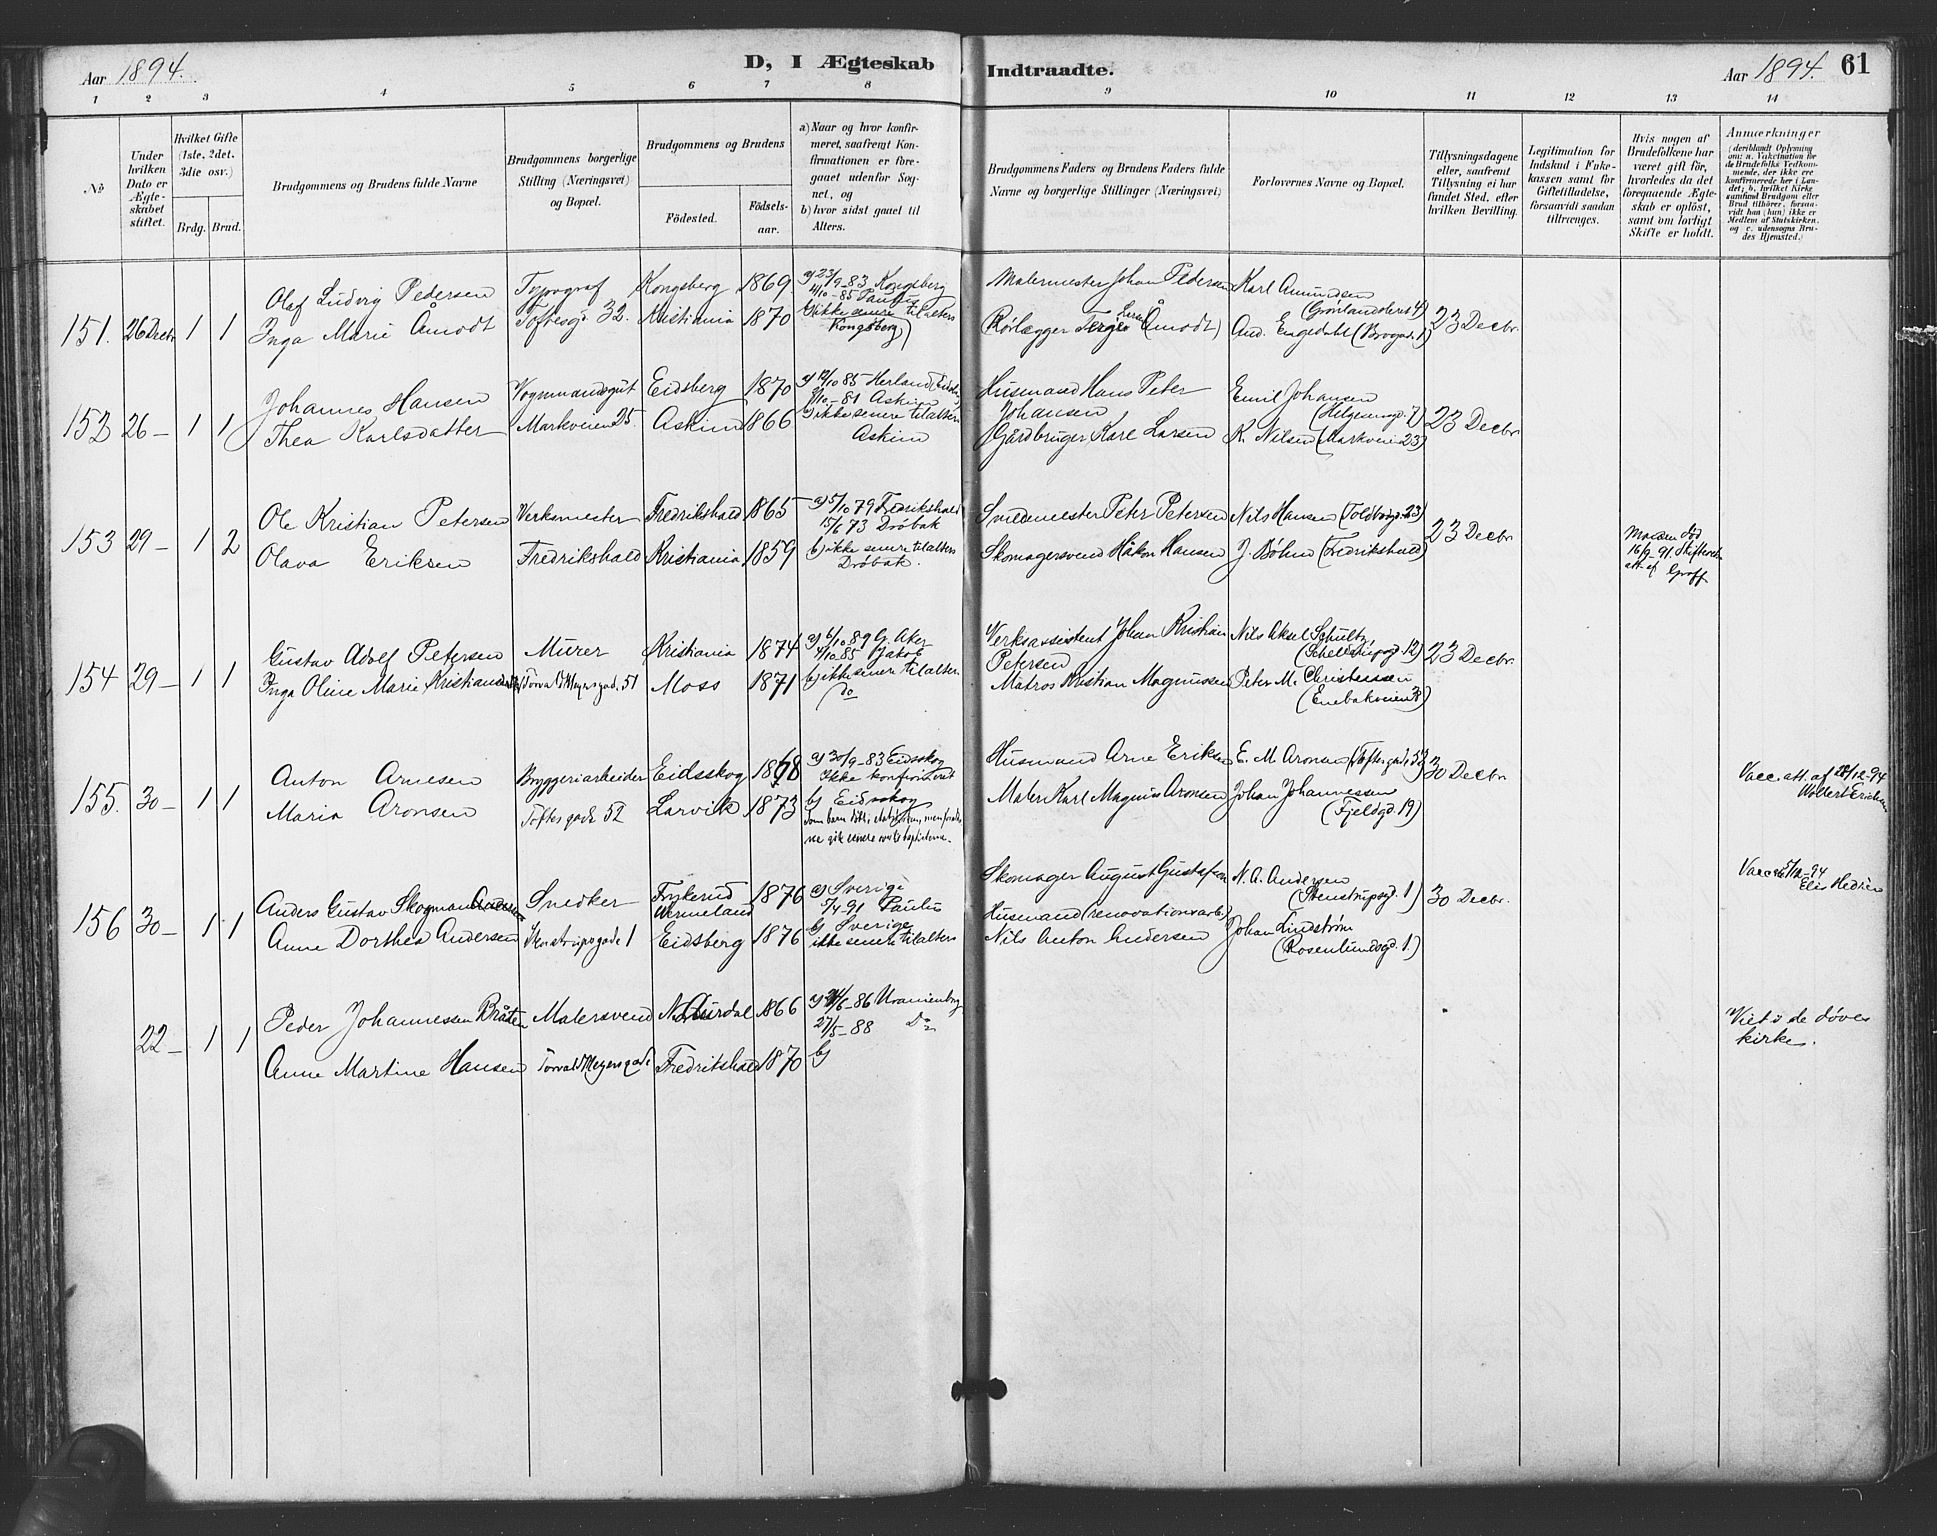 Aar 1894.
D, I Ægteskab Indtraadte.
Aar 1894. 61
1 2 3 4 5 6 7 8 9 10 11 12 13 14
№
Under hvilken Dato er Ægteskabet stiftet.
Hvilket Gifte (1ste, 2det, 3die osv.)
Brdg. Brud.
Brudgommens og Brudens fulde Navne
Brudgommens borgerlige Stilling (Næringsvei) og Bopæl.
Brudgommens og Brudens
Fødested. Fødselsaar.
a) Naar og hvor konfirmeret, saafremt Konfirmationen er foregaaet udenfor Sognet, og
b) hvor sidst gaaet til Alters.
Brudgommens Faders og Brudens Faders fulde Navne og borgerlige Stillinger (Næringsvei)
Forlovernes Navne og Bopæl.
Tillysningsdagene eller, saafremt Tillysning ei har fundet Sted, efter hvilken Bevilling.
Legitimation for Indskud i Enkekassen samt for Giftetilladelse, forsaavidt saadan tiltrænges.
Hvis nogen af Brudefolkene har været gift før, hvorledes da det foregaaende Ægteskab er opløst, samt om lovligt Skifte er holdt.
Anmærkninger (deriblandt Oplysning om: a. Vakcination for de Brudefolks Vedkommende, der ikke ere konfirmerede her i Landet; b. hvilket Kirkesamfund Brudgom eller Brud tilhører, forsaavidt han (hun) ikke er Medlem af Statskirken, og c. udensogns Brudes Hjemsted.)
151. 26 Decbr 1 1
Olaf Ludvig Pedersen Typograf Kongsberg 1869 a) 23/9-83 Kongsberg
Inga Marie Åmodt Toftesg. 32. Kristiania 1870 11/10-85 Paulus
b) ikke senere tilalters
Kongsberg)
Malermester Johan Pedersen Karl Amundsen
(Grønlandsleret 4)
Rørlægger Terger Larsen (Åmodt) And. Engedahl (Brogad. 1) 23 Decbr.
152 26 – 1 1
Johannes Hansen Vognmandsgut Eidsberg 1870 a) 12/10 85 Herland (Eidsbg)
Thea Karlsdatter Markveien 25. Askim 1866 9/10-81 Askim
b) ikke senere tilalters
Askim
Husmand Hans Peter Johansen Emil Johansen
(Helgesensgd. 7)
Gårdbruger Karl Larsen K. Nilsen (Markvein 23) 23 Decbr.
153 29 – 1 2
Ole Kristian Petersen Verksmester Fredrikshald 1865 a) 5/10 79 Fredrikshald
Olava Eriksen Fredrikshald Kristiania 1859 15/6 73 Drøbak
b) ikke senere tilalters
Drøbak.
Smedmester Peter Petersen Nils Hansen (Toldbodgd. 23)
Skomagersvend Håkon Hansen J. Bøhm (Fredrikshald) 23 Decbr
Manden død
16/9-91. Skifteret
att. af Graff
154 29 – 1 1
Gustav Adolf Petersen Murer Kristiania 1874 a) 6/10 89 G. Aker
Inga Oline Marie Kristiansen Torvald Meyersgade 51 Moss 1871 4/10 85 Jakob
b) ikke senere tilalters
do
Verksassistent Johan Kristian Petersen Nils Aksel Schultz
12)
Matros Kristian Magnussen Peter M. Christensen
(Enebakveien 38) 23 Decbr.
155. 30 – 1 1
Anton Arnesen Bryggeriarbeider Eidsskog 1868 a) 30/9-83 Eidsskog
Maria Aronsen Toftesgade 52 Larvik 1873 Ikke konfirmeret
b) Eidsskog
Som barn
Husmand Arne Eriksen E. M. Aronsen (Toftesgade 52)
Maler Karl Magnus Aronsen Johan Johannessen
(Fjeldgd. 19) 30 Decbr
Vacc. att. af 28/12-94
Woldert Erichsen
156 30 – 1 1
Anders Gustav Skogman Andersen Snedker Frykerud Wermeland 1876 a) Sverige
Anne Dorthea Andersen Stenstrupsgade 1 Eidsberg 1876 5/4 91 Paulus
b) Sverige
ikke senere tilalters
Skomager August Gustafson N. A. Andersen
(Stenstrupsgd. 1)
Husmand (renovationsarb.)
Nils Anton Andersen Johan Lindstrøm
(Rosenlundsgd. 1.) 30 Decbr.
Vacc 15/12-94
Elis Hedrén
22 – 1 1
Peder Johannessen Bråten Malersvend N. Aurdal 1866 a) 24/6-86 Uranienborg
Anne Martine Hansen Torvald Meyersgade Fredrikshald 1870 27/5-88 Do
b)
Viet i de døves
kirke.